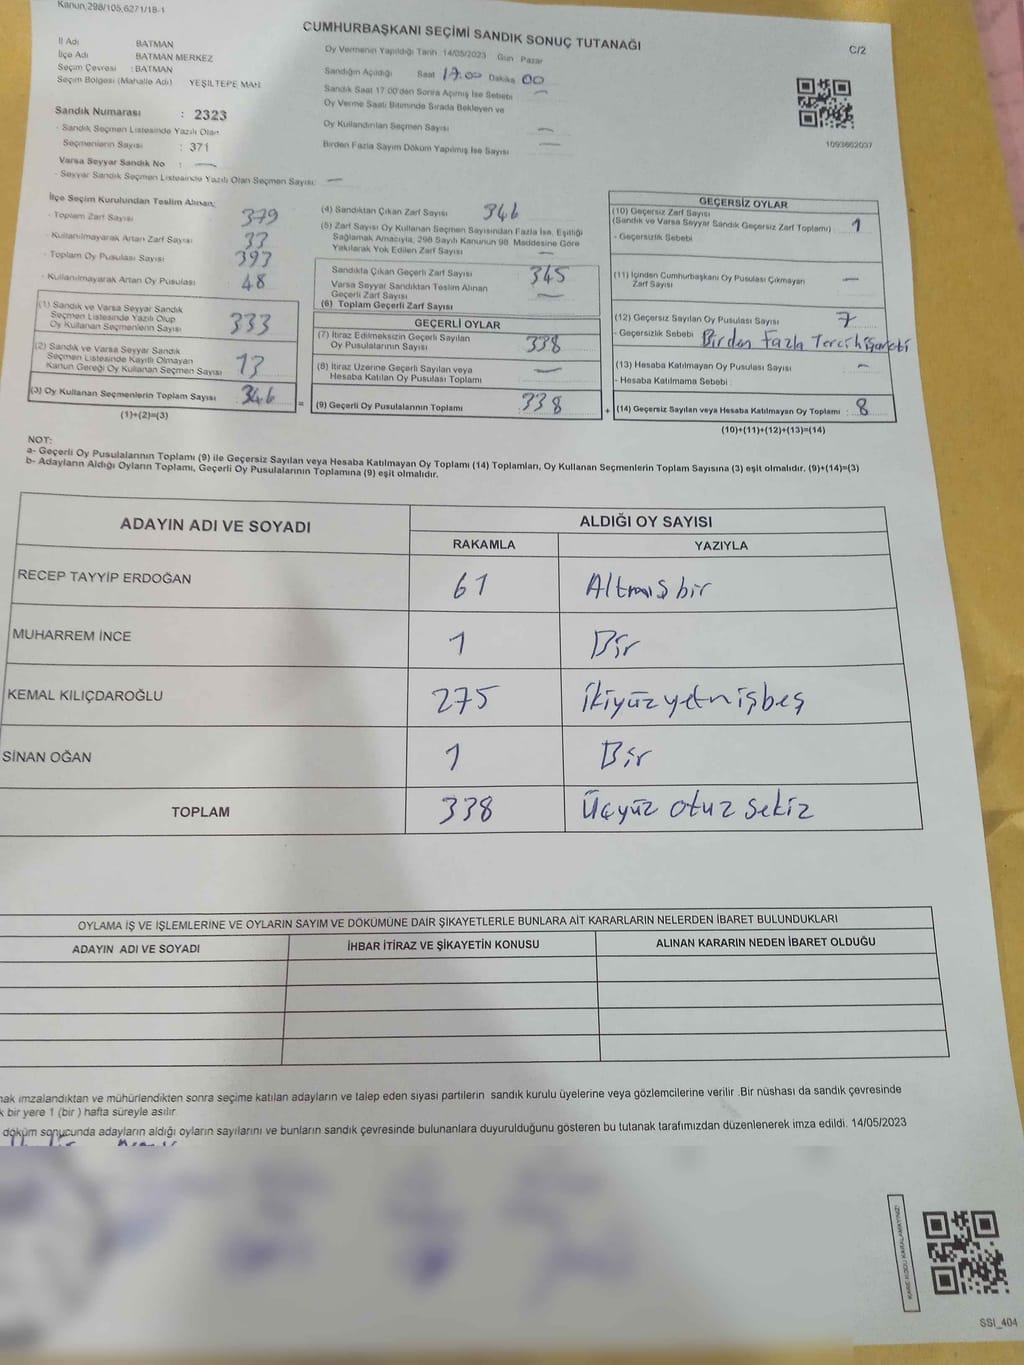 Kanun,298/105,6271/18-1
CUMHURBAŞKANI SEÇİMİ SANDIK SONUÇ TUTANAĞI
C/2
İl Adı BATMAN
İlçe Adı BATMAN MERKEZ
Seçim Çevresi : BATMAN
Seçim Bölgesi (Mahalle Adı) YEŞİLTEPE MAH.
Oy Vermenin Yapıldığı Tarih 14/05/2023 Gün Pazar
Sandığın Açıldığı Saat 17:00 Dakika 00
Sandık Saat 17:00'den Sonra Açımış İse Sebebi —
Oy Verme Saati Bitiminde Sırada Bekleyen ve
Oy Kullandırılan Seçmen Sayısı —
Birden Fazla Sayım Döküm Yapılmış İse Sayısı —
1093662037
Sandık Numarası : 2323
- Sandık Seçmen Listesinde Yazılı Olan
Seçmenlerin Sayısı : 371
Varsa Seyyar Sandık No : —
- Seyyar Sandık Seçmen Listesinde Yazılı Olan Seçmen Sayısı: —
İlçe Seçim Kurulundan Teslim Alınan;
- Toplam Zarf Sayısı 379
- Kullanılmayarak Artan Zarf Sayısı 33
- Toplam Oy Pusulası Sayısı 397
- Kullanılmayarak Artan Oy Pusulası 48
(1) Sandık ve Varsa Seyyar Sandık
Seçmen Listesinde Yazılı Olup
Oy Kullanan Seçmenlerin Sayısı 333
(2) Sandık ve Varsa Seyyar Sandık
Seçmen Listesinde Kayıtlı Olmayan
Kanun Gereği Oy Kullanan Seçmen Sayısı 13
(3) Oy Kullanan Seçmenlerin Toplam Sayısı 346
(1)+(2)=(3)
=
(4) Sandıktan Çıkan Zarf Sayısı 346
(5) Zarf Sayısı Oy Kullanan Seçmen Sayısından Fazla İse, Eşitliği
Sağlamak Amacıyla, 298 Sayılı Kanunun 98. Maddesine Göre
Yakılarak Yok Edilen Zarf Sayısı —
Sandıkta Çıkan Geçerli Zarf Sayısı 345
Varsa Seyyar Sandıktan Teslim Alınan
Geçerli Zarf Sayısı —
(6) Toplam Geçerli Zarf Sayısı
GEÇERLİ OYLAR
(7) İtiraz Edilmeksizin Geçerli Sayılan
Oy Pusulalarının Sayısı 338
(8) İtiraz Üzerine Geçerli Sayılan veya
Hesaba Katılan Oy Pusulası Toplamı —
(9) Geçerli Oy Pusulalarının Toplamı 338
+
GEÇERSİZ OYLAR
(10) Geçersiz Zarf Sayısı
(Sandık ve Varsa Seyyar Sandık Geçersiz Zarf Toplamı) : 1
- Geçersizlik Sebebi
(11) İçinden Cumhurbaşkanı Oy Pusulası Çıkmayan
Zarf Sayısı —
(12) Geçersiz Sayılan Oy Pusulası Sayısı : 7
- Geçersizlik Sebebi Birden Fazla Tercih işareti
(13) Hesaba Katılmayan Oy Pusulası Sayısı : —
- Hesaba Katılmama Sebebi :
(14) Geçersiz Sayılan veya Hesaba Katılmayan Oy Toplamı : 8
(10)+(11)+(12)+(13)=(14)
NOT:
a- Geçerli Oy Pusulalarının Toplamı (9) ile Geçersiz Sayılan veya Hesaba Katılmayan Oy Toplamı (14) Toplamları, Oy Kullanan Seçmenlerin Toplam Sayısına (3) eşit olmalıdır. (9)+(14)=(3)
b- Adayların Aldığı Oyların Toplamı, Geçerli Oy Pusulalarının Toplamına (9) eşit olmalıdır.
ADAYIN ADI VE SOYADI
ALDIĞI OY SAYISI
RAKAMLA YAZIYLA
RECEP TAYYİP ERDOĞAN 61 Altmış bir
MUHARREM İNCE 1 Bir
KEMAL KILIÇDAROĞLU 275 ikiyüz yetmişbeş
SİNAN OĞAN 1 Bir
TOPLAM 338 Üçyüz otuz sekiz
OYLAMA İŞ VE İŞLEMLERİNE VE OYLARIN SAYIM VE DÖKÜMÜNE DAİR ŞİKAYETLERLE BUNLARA AİT KARARLARIN NELERDEN İBARET BULUNDUKLARI
ADAYIN ADI VE SOYADI İHBAR İTİRAZ VE ŞİKAYETİN KONUSU ALINAN KARARIN NEDEN İBARET OLDUĞU
imzalandıktan ve mühürlendikten sonra seçime katılan adayların ve talep eden siyasi partilerin sandık kurulu üyelerine veya gözlemcilerine verilir .Bir nüshası da sandık çevresinde
bir yere 1 (bir ) hafta süreyle asılır.
döküm sonucunda adayların aldığı oyların sayılarını ve bunların sandık çevresinde bulunanlara duyurulduğunu gösteren bu tutanak tarafımızdan düzenlenerek imza edildi. 14/05/2023
KARE KODU KARALAMAYINIZ!
SSI_404